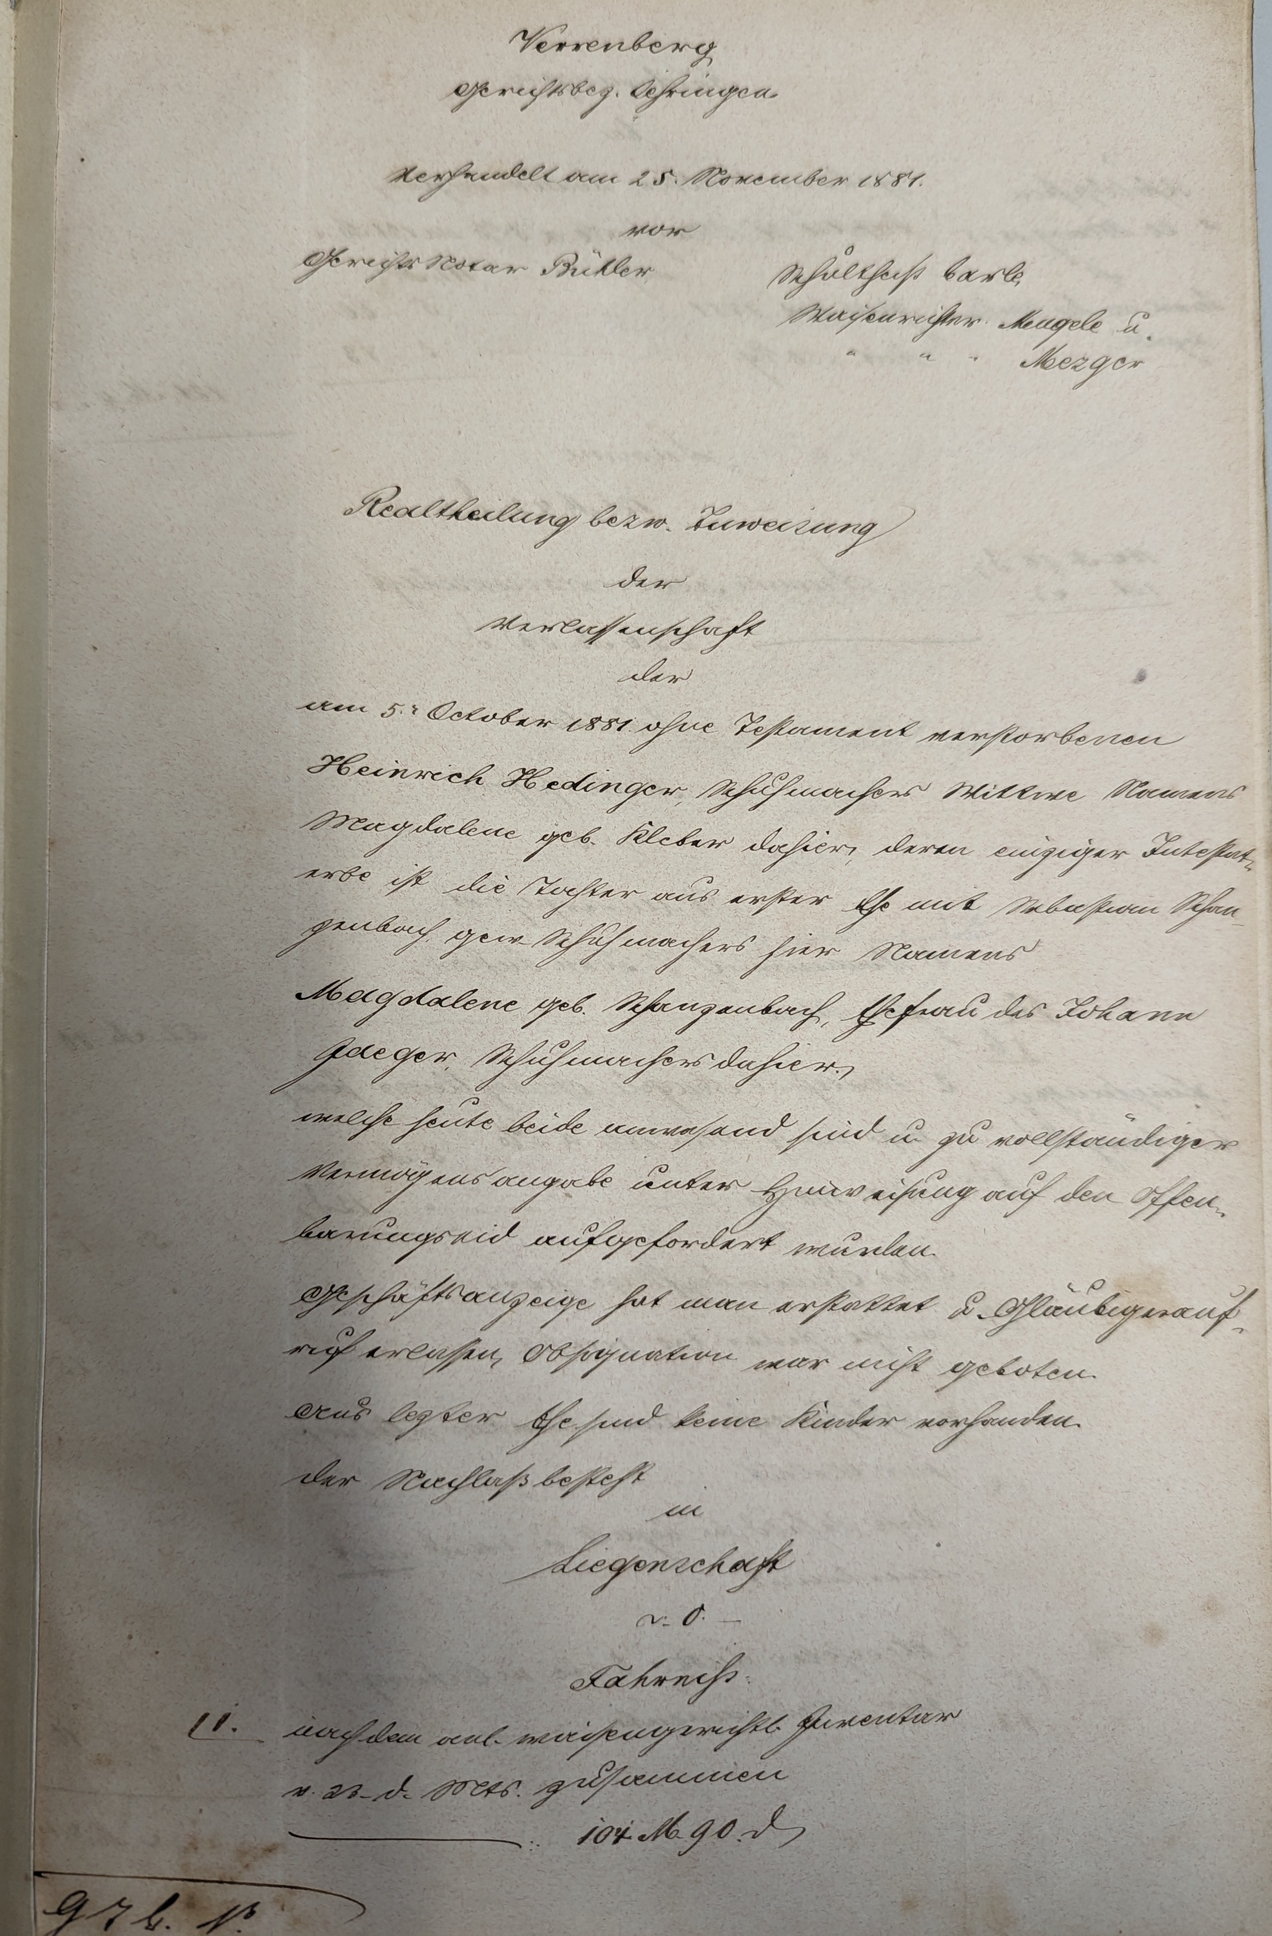 Verrenberg
Gerichtsbez. Oehringen
Verhandelt am 25. November 1881.
vor
Gerichts Notar Bühler
Schultheiß Carle
Waisenrichter Mengele u.
" " " Mezger
Realtheilung bezw. Zuweisung
der
Verlassenschaft
der
am 5. October 1881 ohne Testament verstorbenen
Heinrich Hedinger, Schuhmachers Wittwe Namens
Magdalene geb. Kleber dahier, deren einziger Intestat-
erbe ist die Tochter aus erster Ehe mit Sebastian Schan-
zenbach, gew. Schuhmachers hier Namens
Magdalene geb. Schanzenbach, Ehefrau des Johann
Jaeger, Schuhmachers dahier,
welche heute beide anwesend sind u. zu vollständiger
Vermögensangabe unter Hinweisung auf den Offen-
barungseid aufgefordert wurden.
Geschäftsanzeige hat man erstattet u. Gläubigerauf-
ruf erlassen, Obsignation war nicht geboten.
Aus lezter Ehe sind keine Kinder vorhanden.
Der Nachlaß besteht
in
Liegenschaft
0. —
Fahrniß:
11. nach dem anl. waisengerichtl. Inventar
v. 23. d. Mts. zusammen
104 M. 90. d